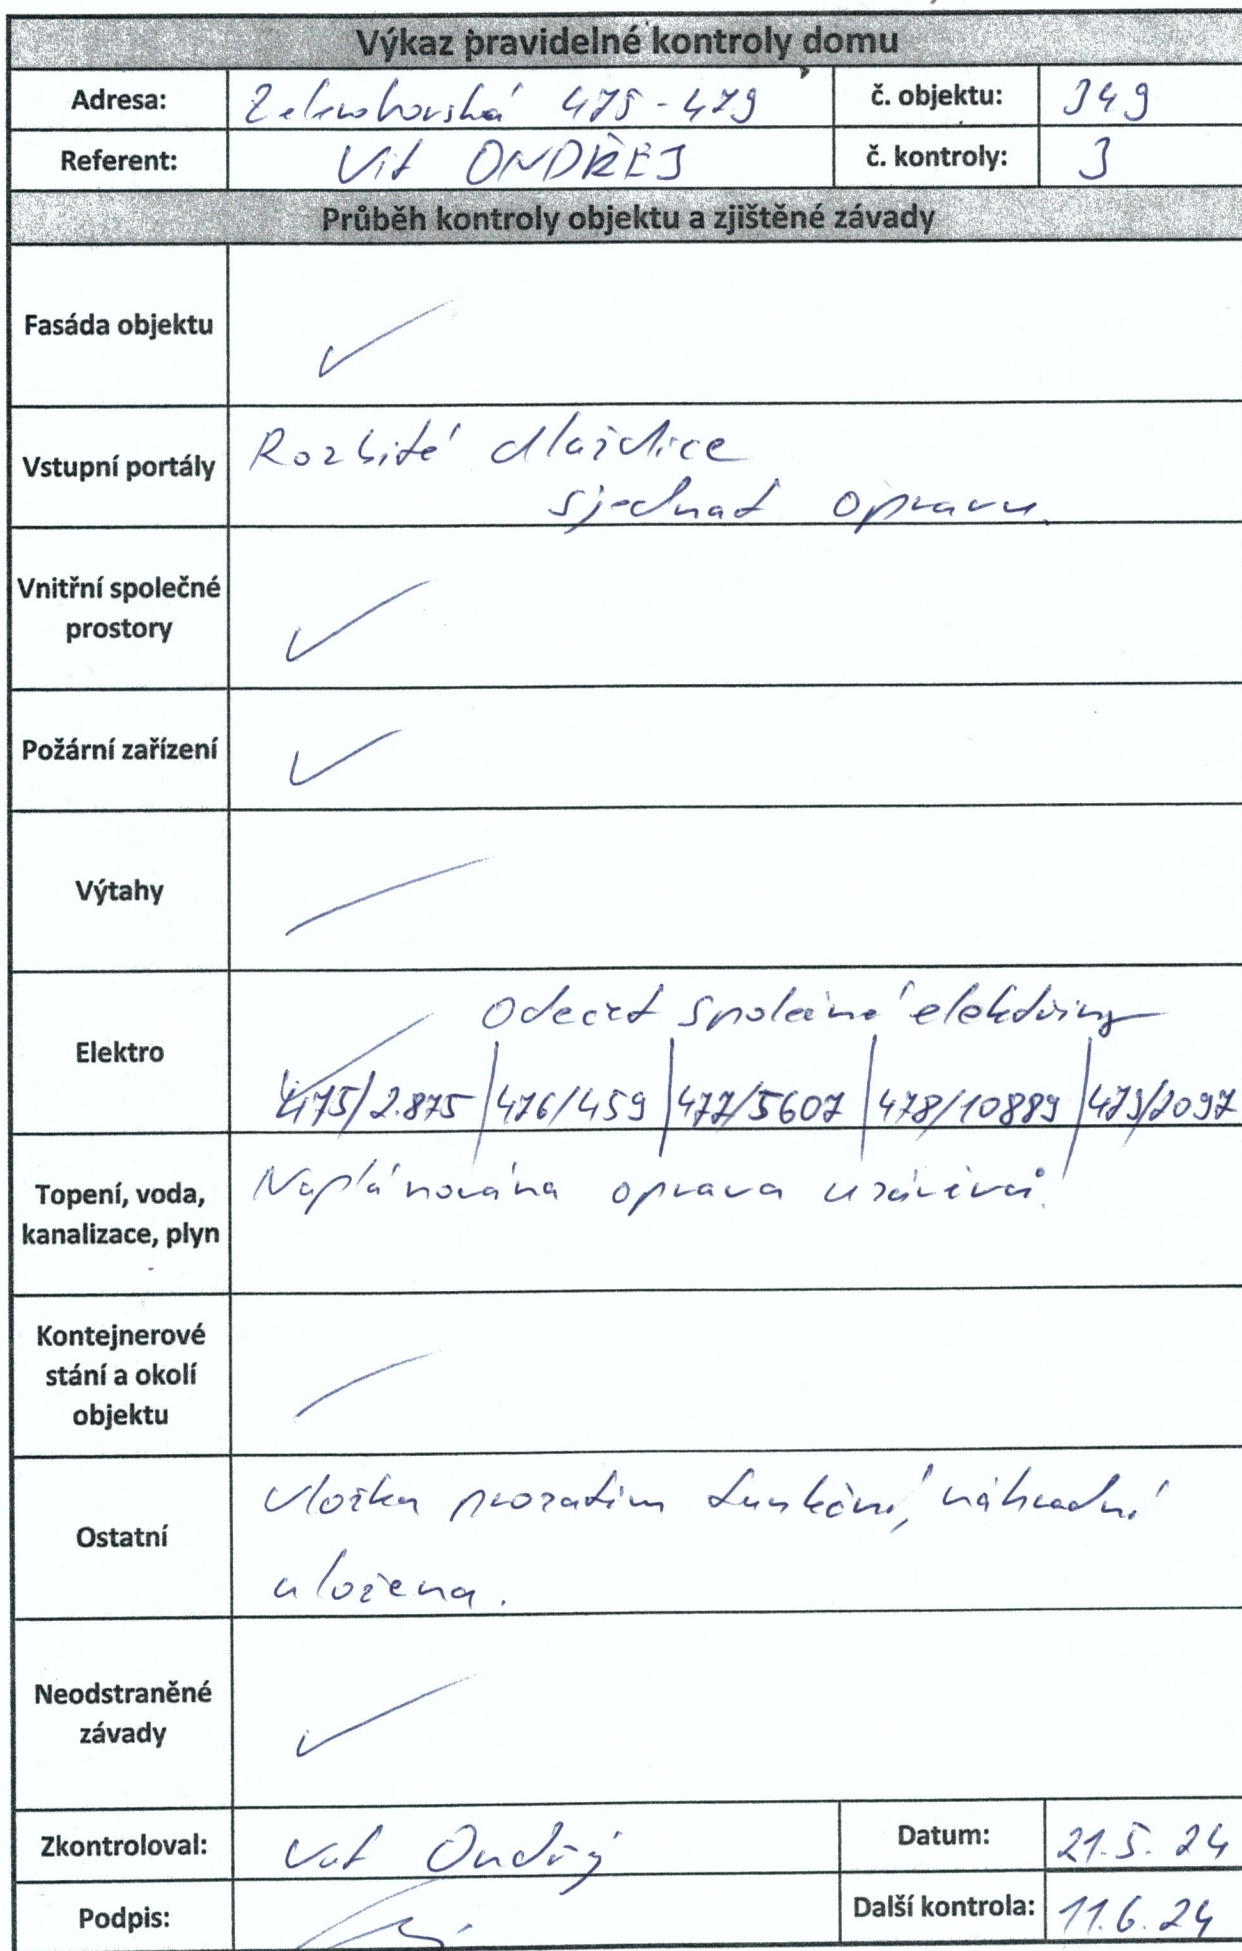 Výkaz pravidelné kontroly domu
Adresa: Zelenohorská 475-479 č. objektu: 349
Referent: Vít ONDŘEJ č. kontroly: 3
Průběh kontroly objektu a zjištěné závady
Fasáda objektu ✓
Vstupní portály Rozbité dlaždice
sjednat opravu
Vnitřní společné
prostory ✓
Požární zařízení ✓
Výtahy
Odečet společné elektřiny
Elektro ✓
475/2.875 | 476/459 | 477/5607 | 478/10889 | 479/2097
Topení, voda,
kanalizace, plyn
Naplánována oprava uzávěrů.
Kontejnerové
stání a okolí
objektu
Ostatní
Vložka prozatím funkční, náhradní
uložena.
Neodstraněné
závady ✓
Zkontroloval: Vít Ondřej Datum: 21.5.24
Podpis: Další kontrola: 11.6.24